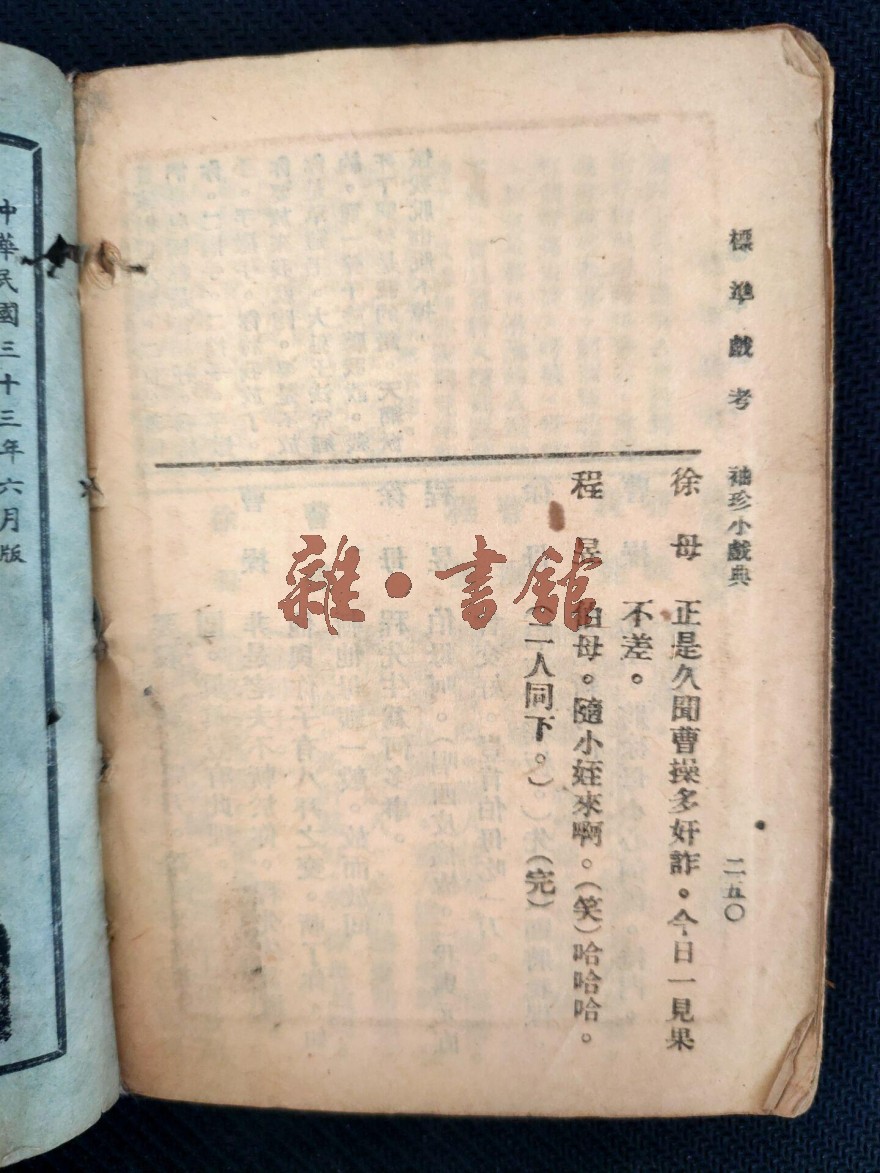 標準戲考 袖珍小戲典 二五〇
徐母 正是久聞曹操多奸詐。今日一見果
不差。
程昱 伯母。隨小姪來啊。(笑)哈哈哈。
(二人同下。)(完)
中華民國三十三年六月版
雜·書館